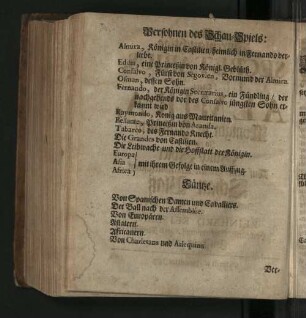 Persohnen des Schau-Spiels:
Almira, Königin in Castilien heimlich in Fernando ver-
liebt.
Edilia, eine Princeßin von Königl. Geblüth.
Consalvo, Fürst von Segovien, Vormund der Almira.
Osman, dessen Sohn.
Fernando, der Königin Secretarius, ein Fündling / der
nochgehends vor des Consalvo jüngsten Sohn er-
kannt wird
Raymondo, König aus Mauritanien.
Bellante, Princeßin von Aranda.
Tabarco, des Fernando Knecht.
Die Grandes von Castilien.
Die Leibwacht und die Hoffstatt der Königin.
Europa)
Asia ) mit ihrem Gefolge in einem Auffzug.
Africa)
Däntze.
Von Spanischen Damen und Cavalliers.
Der Ball nach der Assemblée.
Von Europäern.
Asiatern.
Africanern.
Von Charletans und Arlequins.
Ver-